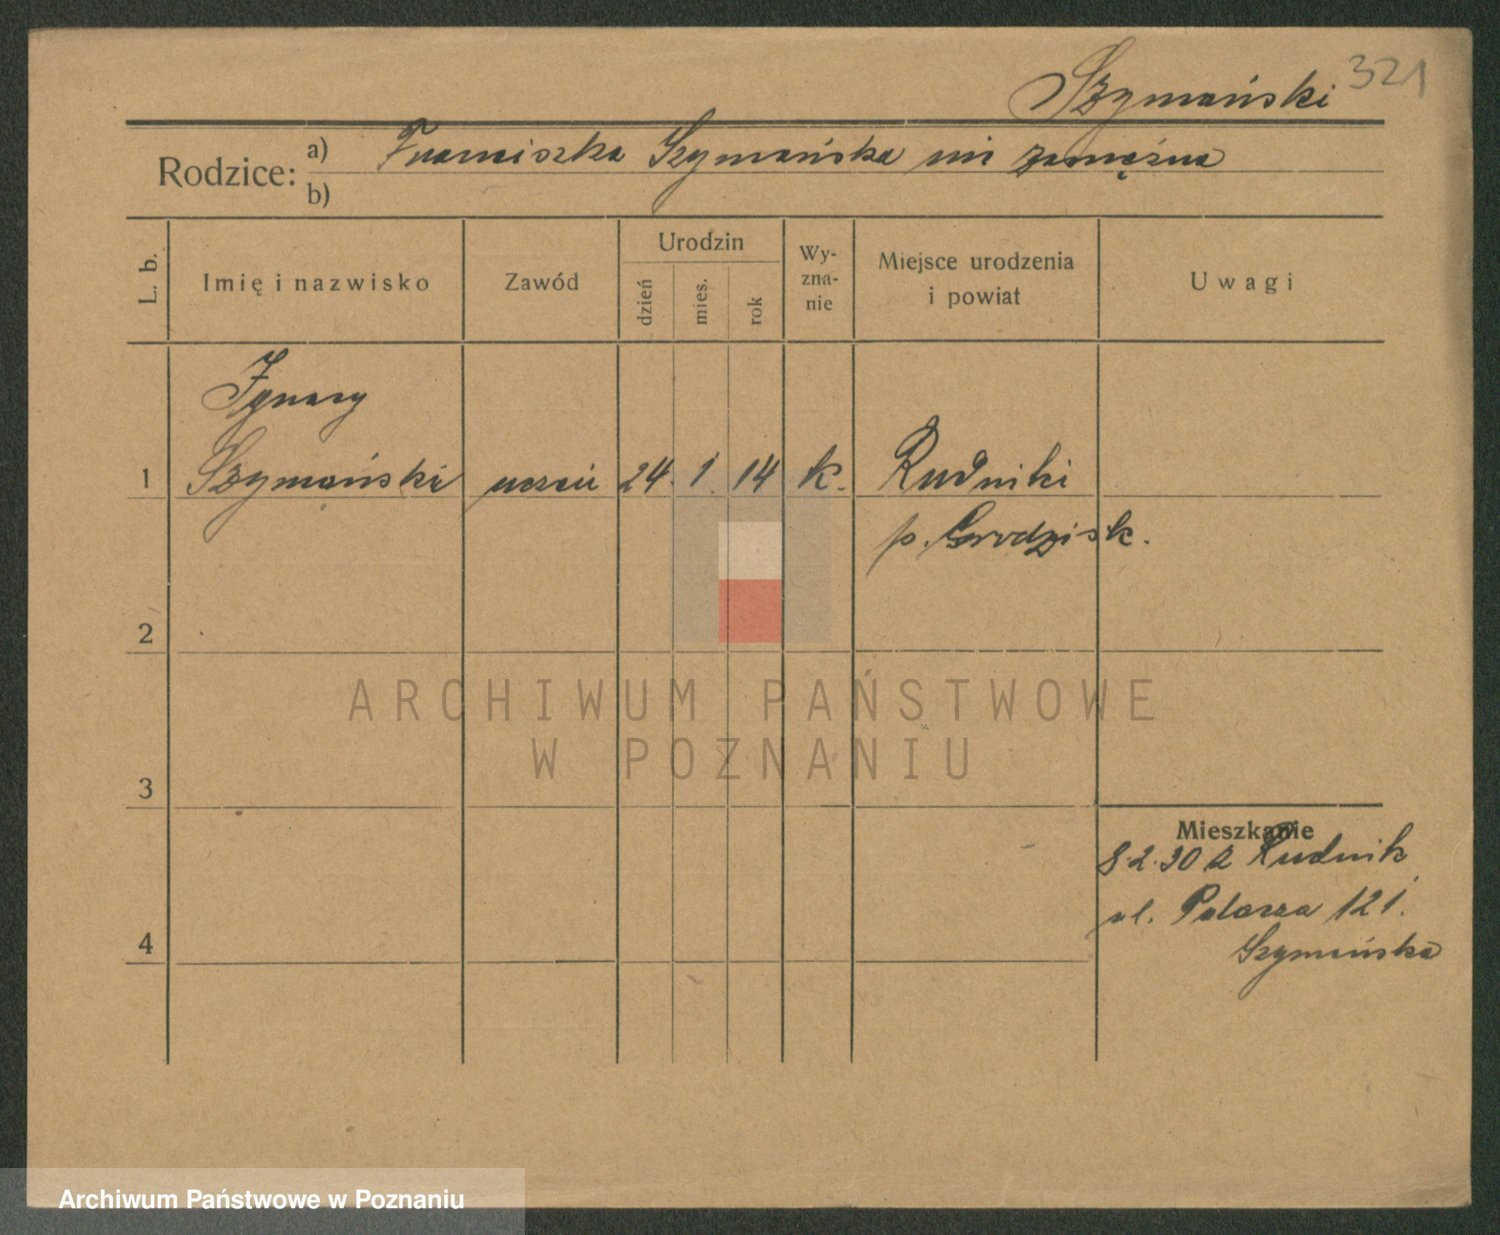 Szymański 321
Rodzice: a) Franciszka Szymańska nie zamężna
b)
L. b.
Imię i nazwisko
Zawód
Urodzin
dzień
mies.
rok
Wy-
zna-
nie
Miejsce urodzenia
i powiat
Uwagi
Ignacy
1 Szymański uczeń 24. 1. 14 k. Rudniki
p. Grodzisk.
2
3
4
ARCHIWUM PAŃSTWOWE
W POZNANIU
Mieszkanie
8.2.30 z Rudnik
ul. Palacza 121.
Szymańska
Archiwum Państwowe w Poznaniu